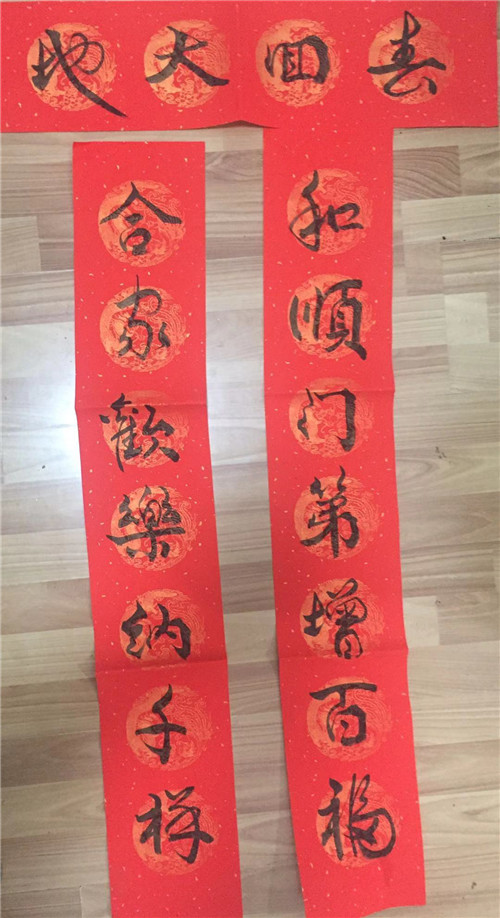 春回大地
和順门第增百福
合家歡樂纳千祥